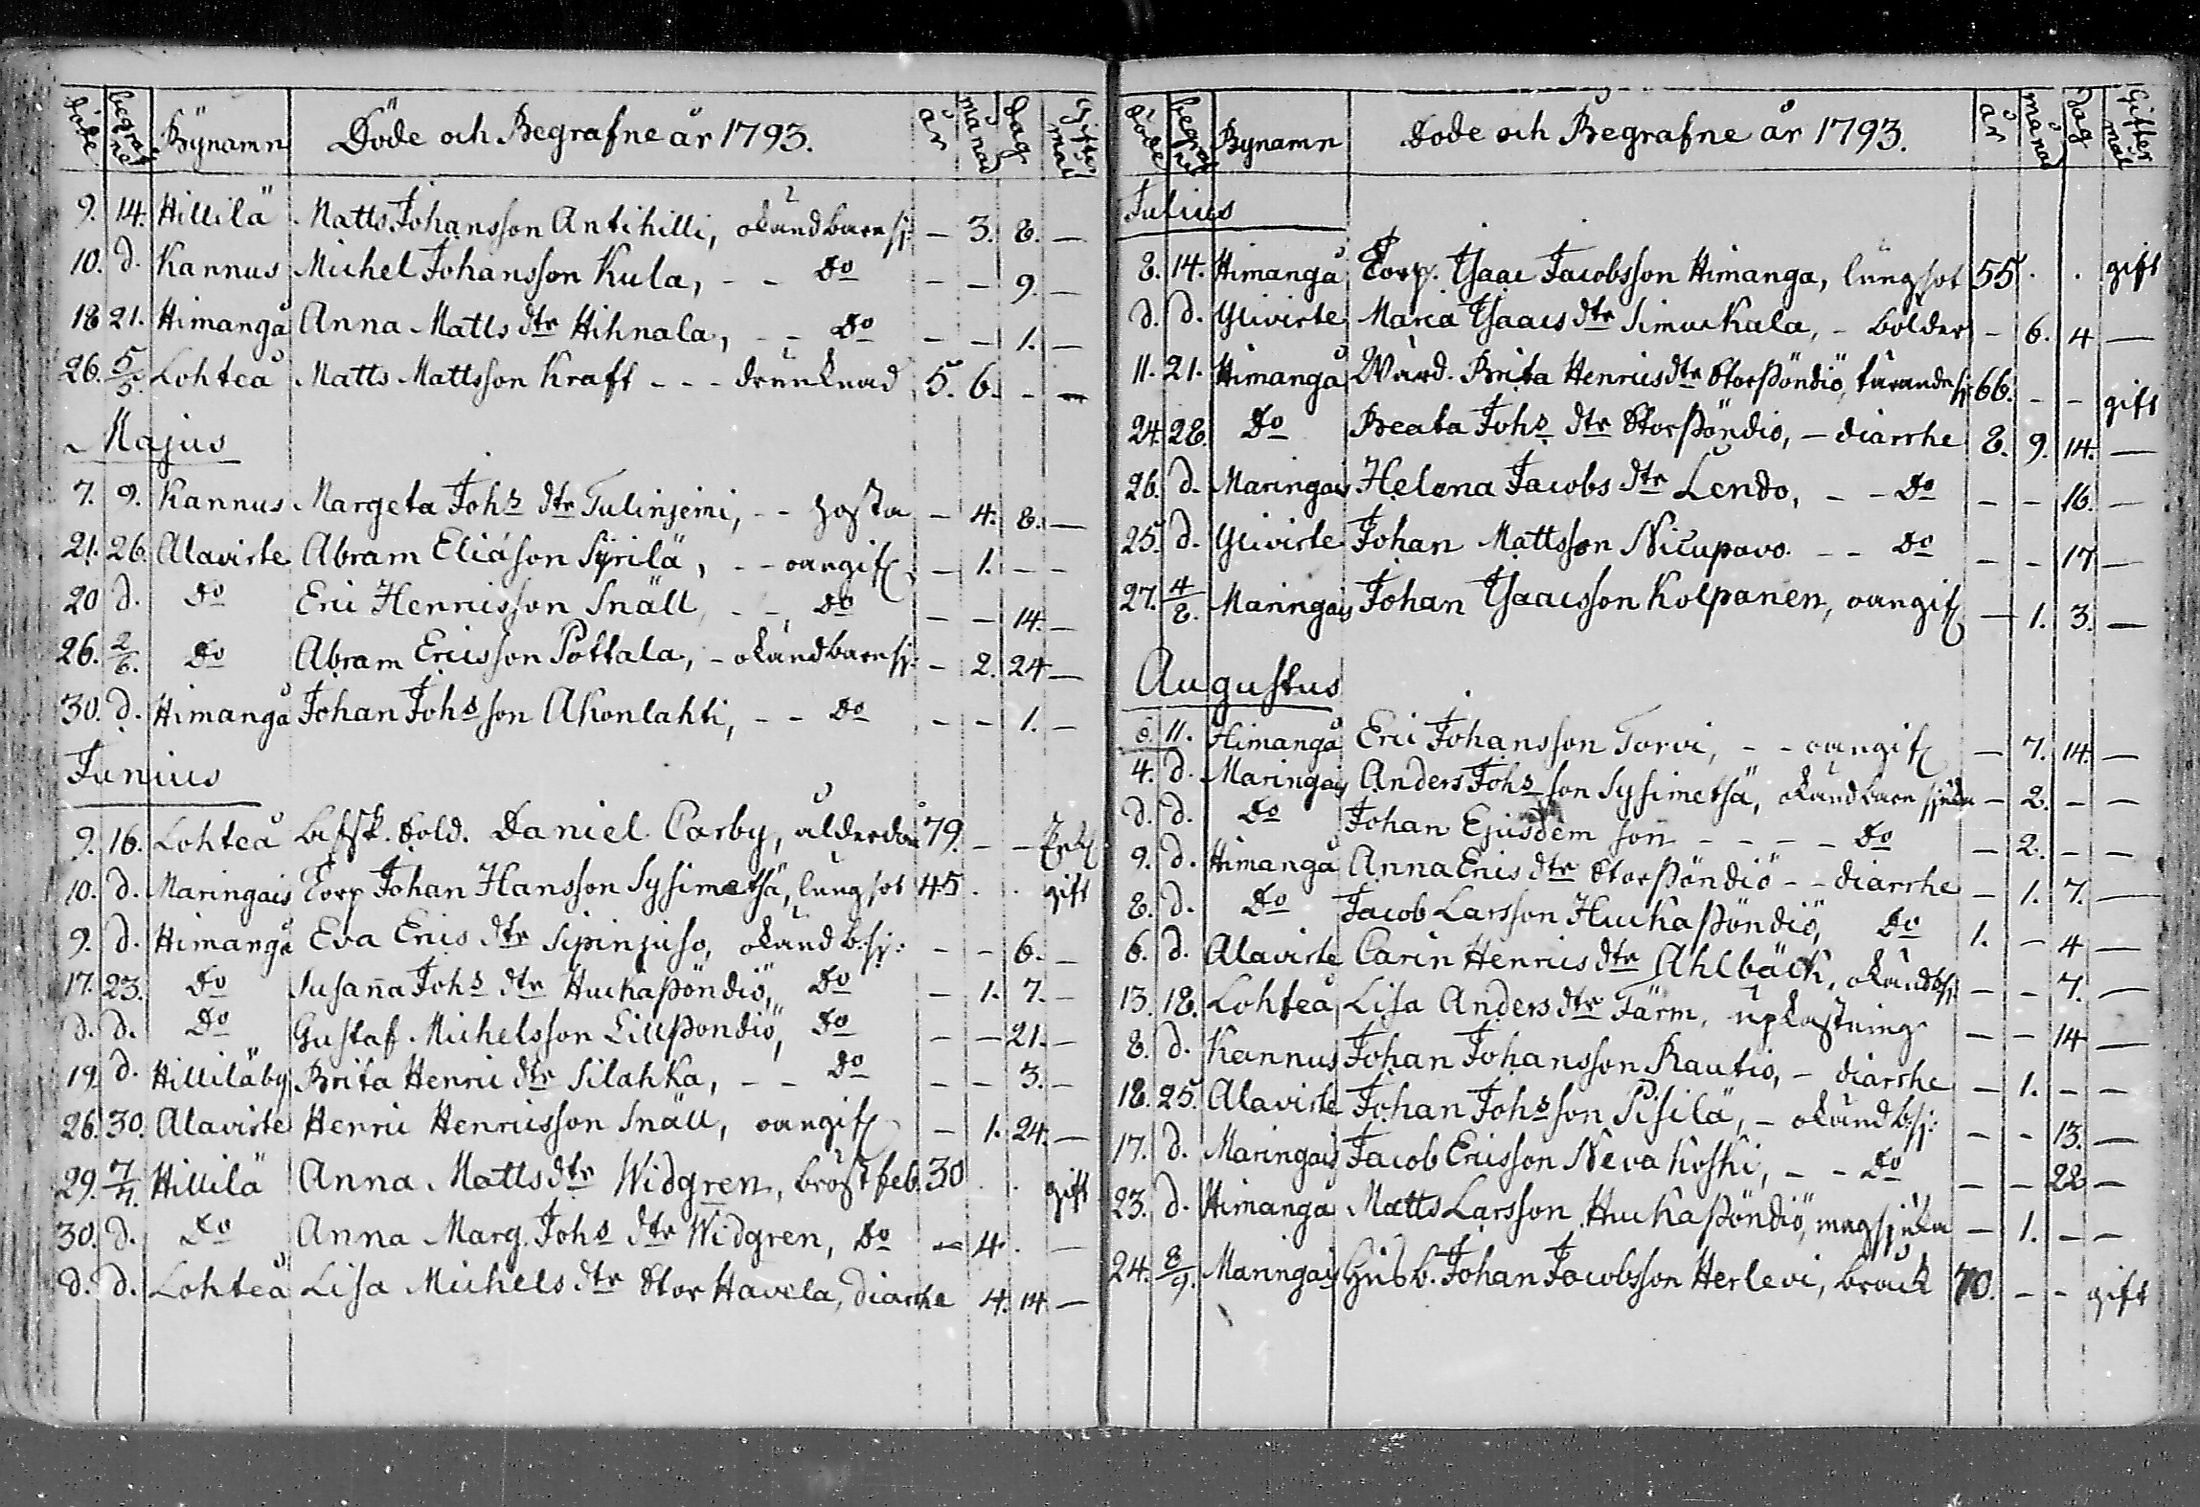 döde begrafne Bÿnamn Döde och Begrafne år 1793. år månad dag Giftermål
9. 14. Hillilä Matts Johansson Antihilli, okänd barnsj: – 3. 8. –
10. d. Kannus Michel Johansson Kula, - - Do – – 9. –
18 21. Himangå Anna Matts dtr Hihnala, - - Do – – 1. –
26. 5/5. Lohteå Matts Mattsson Kraft - - - drunknad 5. 6. - –
Majus
7. 9. Kannus Margeta Johs dtr Tulinjemi, - - hosta – 4. 8. –
21. 26. Alavirte Abram Eliæson Sÿrilä, - - oangif – 1. – –
20 d. Do Eric Henricsson Snäll, - - Do – – 14. –
26. 2/6. Do Abram Ericsson Pottala, - okänd barnsj: – 2. 24 –
30. d. Himangå Johan Johs son Akonlahti, - - Do – – 1. –
Junius
9. 16. Lohteå Sold. Daniel Carby, ålderdom 79. – –
10. d. Maringais Torp Johan Hansson Sysimetsä, lungsot 45 . . gift
9. d. Himangå Eva Erics dtr Sipinjuso, okänd b:sj: – – 6. –
17. 23. Do Susaña Johs dtr Huchapöndiö, Do – 1. 7. –
d. d. Do Gustaf Michelsson Lillpöndiö, Do – – 21. –
19. d. Hilliläby Brita Henric dtr Silahka, - - Do – – 3. –
26. 30. Alavirte Henric Henricsson Snäll, oangif – 1. 24. –
29. 7/7. Hillilä Anna Matts dtr Widgren, bröstfeb. 30 . . gift
30. d. Do Anna Marg. Johs dtr Widgren, Do – 4. . –
d. d. Lohteå Lisa Michels dtr Stor Havela, diarrhe 4. 14. –
döde begrafne Bynamn Döde och Begrafne år 1793. år månad dag Giftermål
Julius
8. 14. Himangå Torp. Isaac Jacobsson Himanga, lungsot 55 . . gift
d. d. Ylivirte Maria Isaacs dtr Simuckala, - bölder – 6. 4 –
11. 21. Himangå Wärd. Brita Henricsdtr Storpöndiö, tärandesj: 66. – – gift
24. 28. Do Beata Johs dtr Storpöndiö, – diarrhe 8. 9. 14. –
26. d. Maringais Helena Jacobs dtr Lendo, - - Do – – 16. –
25. d. Ylivirte Johan Mattsson Nicupavo. - - Do – – 17 –
27. 4/8. Maringais Johan Isaacsson Kolpanen, oangif – 1. 3. –
Augustus
6. 11. Himangå Eric Johansson Torvi, - - oangif – 7. 14. –
4. d. Maringais Anders Johs son Sysimetsä, okänd barnsjuka – 2. – –
d. d. Do Johan Ejusdem son - - - - Do – 2. – –
9. d. Himangå Anna Erics dtr Storpöndiö - - diarrhe – 1. 7. –
8. d. Do Jacob Larsson Huckapöndiö, Do 1. – 4 –
6. d. Alavirte Carin Henrics dtr Ahlbäck, okänd b:sj: – – 7. –
13. 18. Lohteå Lisa Anders dtr Färm, upkastning – – 14 –
8. d. Kannus Johan Johansson Rautio, - diarrhe – 1. – –
18. 25. Alavirte Johan Johs son Pisilä, - okänd b:sj: – – 13. –
17. d. Maringais Jacob Ericsson Nevakoski, - - Do – – 22 –
23. d. Himangå Matts Larsson Huckapöndiö, magsjuka – 1. – –
24. 8/9. Maringais Husb. Johan Jacobsson Herlevi, bråck 70. – – gift